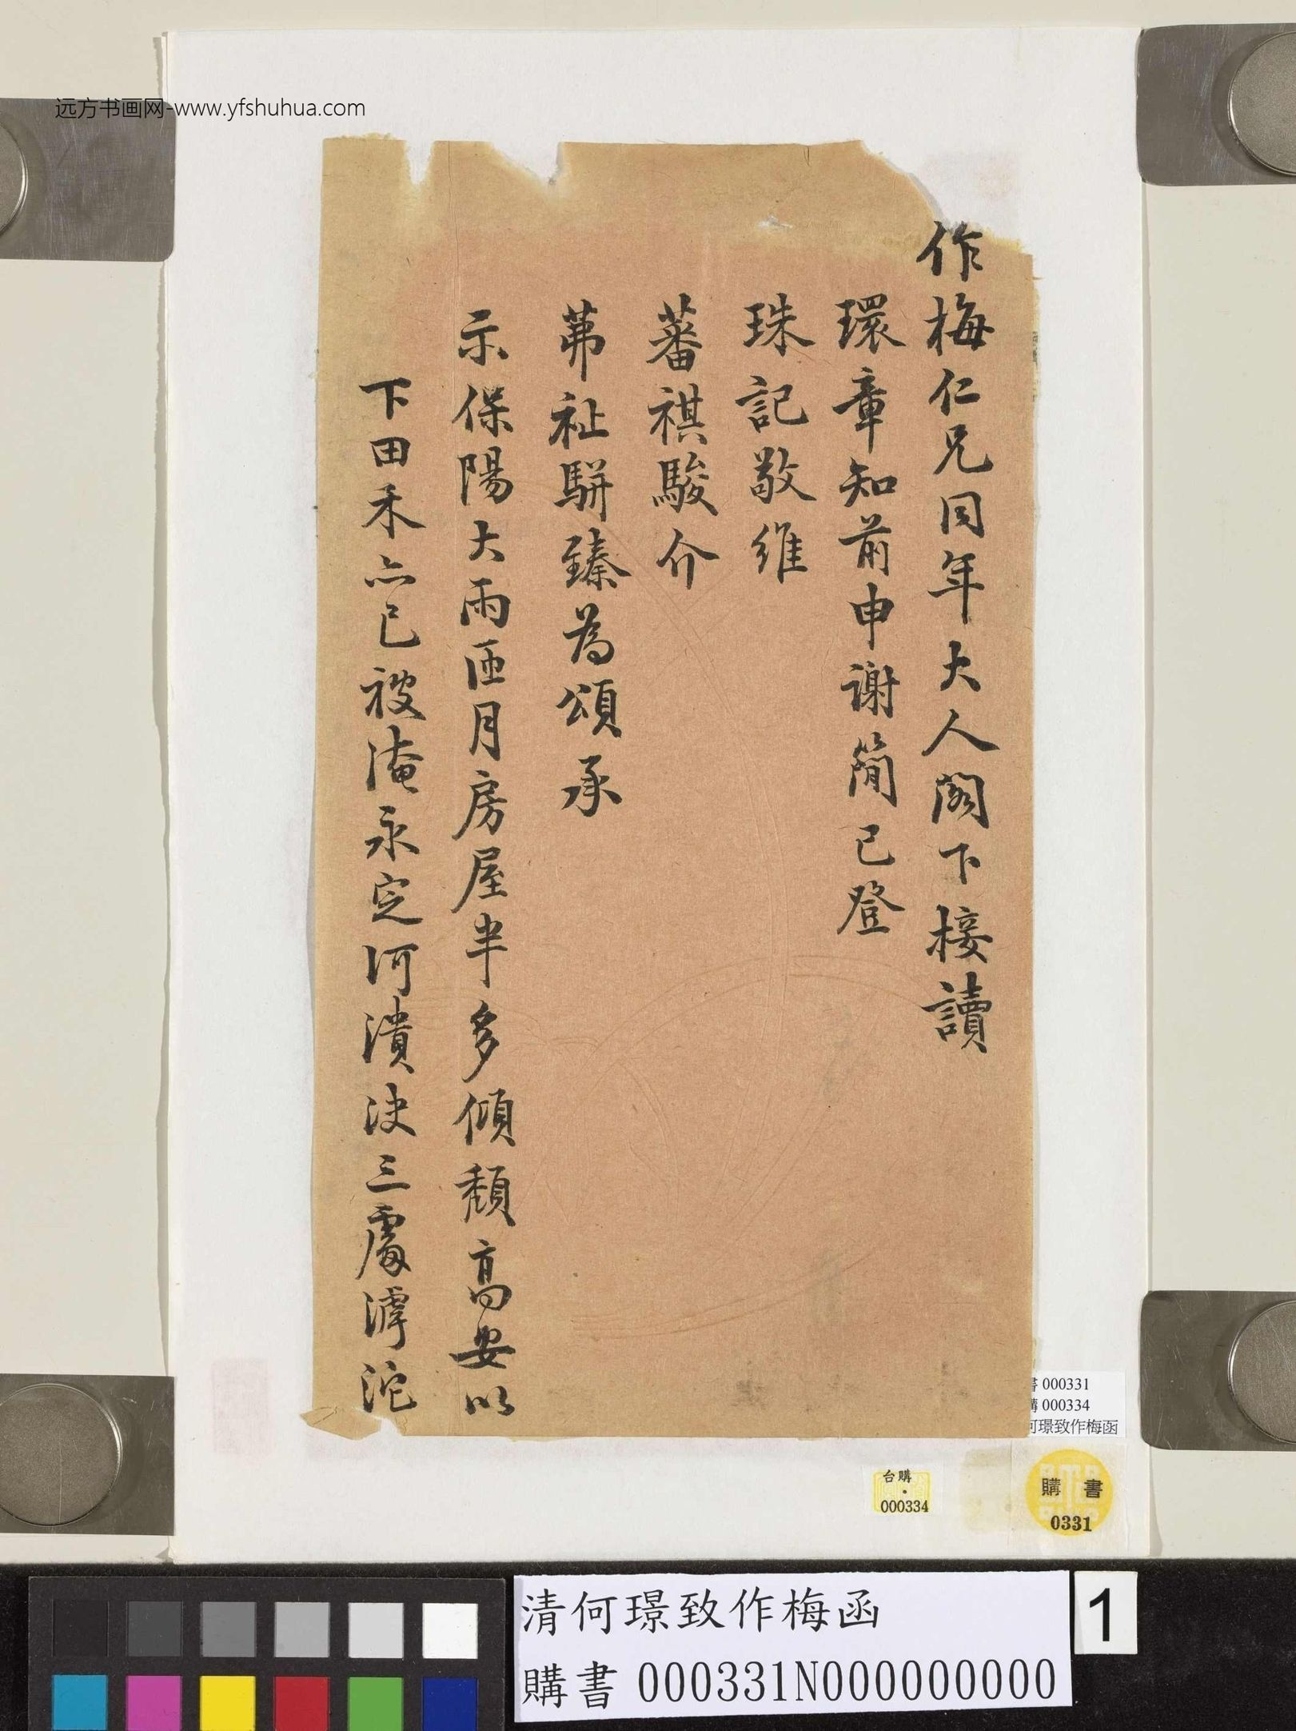 远方书画网-www.yfshuhua.com
作梅仁兄同年大人阁下接讀
環章知前申谢简已登
珠記敬维
蕃祺駿介
茀祉駢臻為頌承
示保陽大雨匝月房屋半多傾頹高安以
下田禾亦已被淹永定河潰决三處滹沱
書 000331
購 000334
何璟致作梅函
台購
000334
購 書
0331
清何璟致作梅函
購書 000331N000000000
1